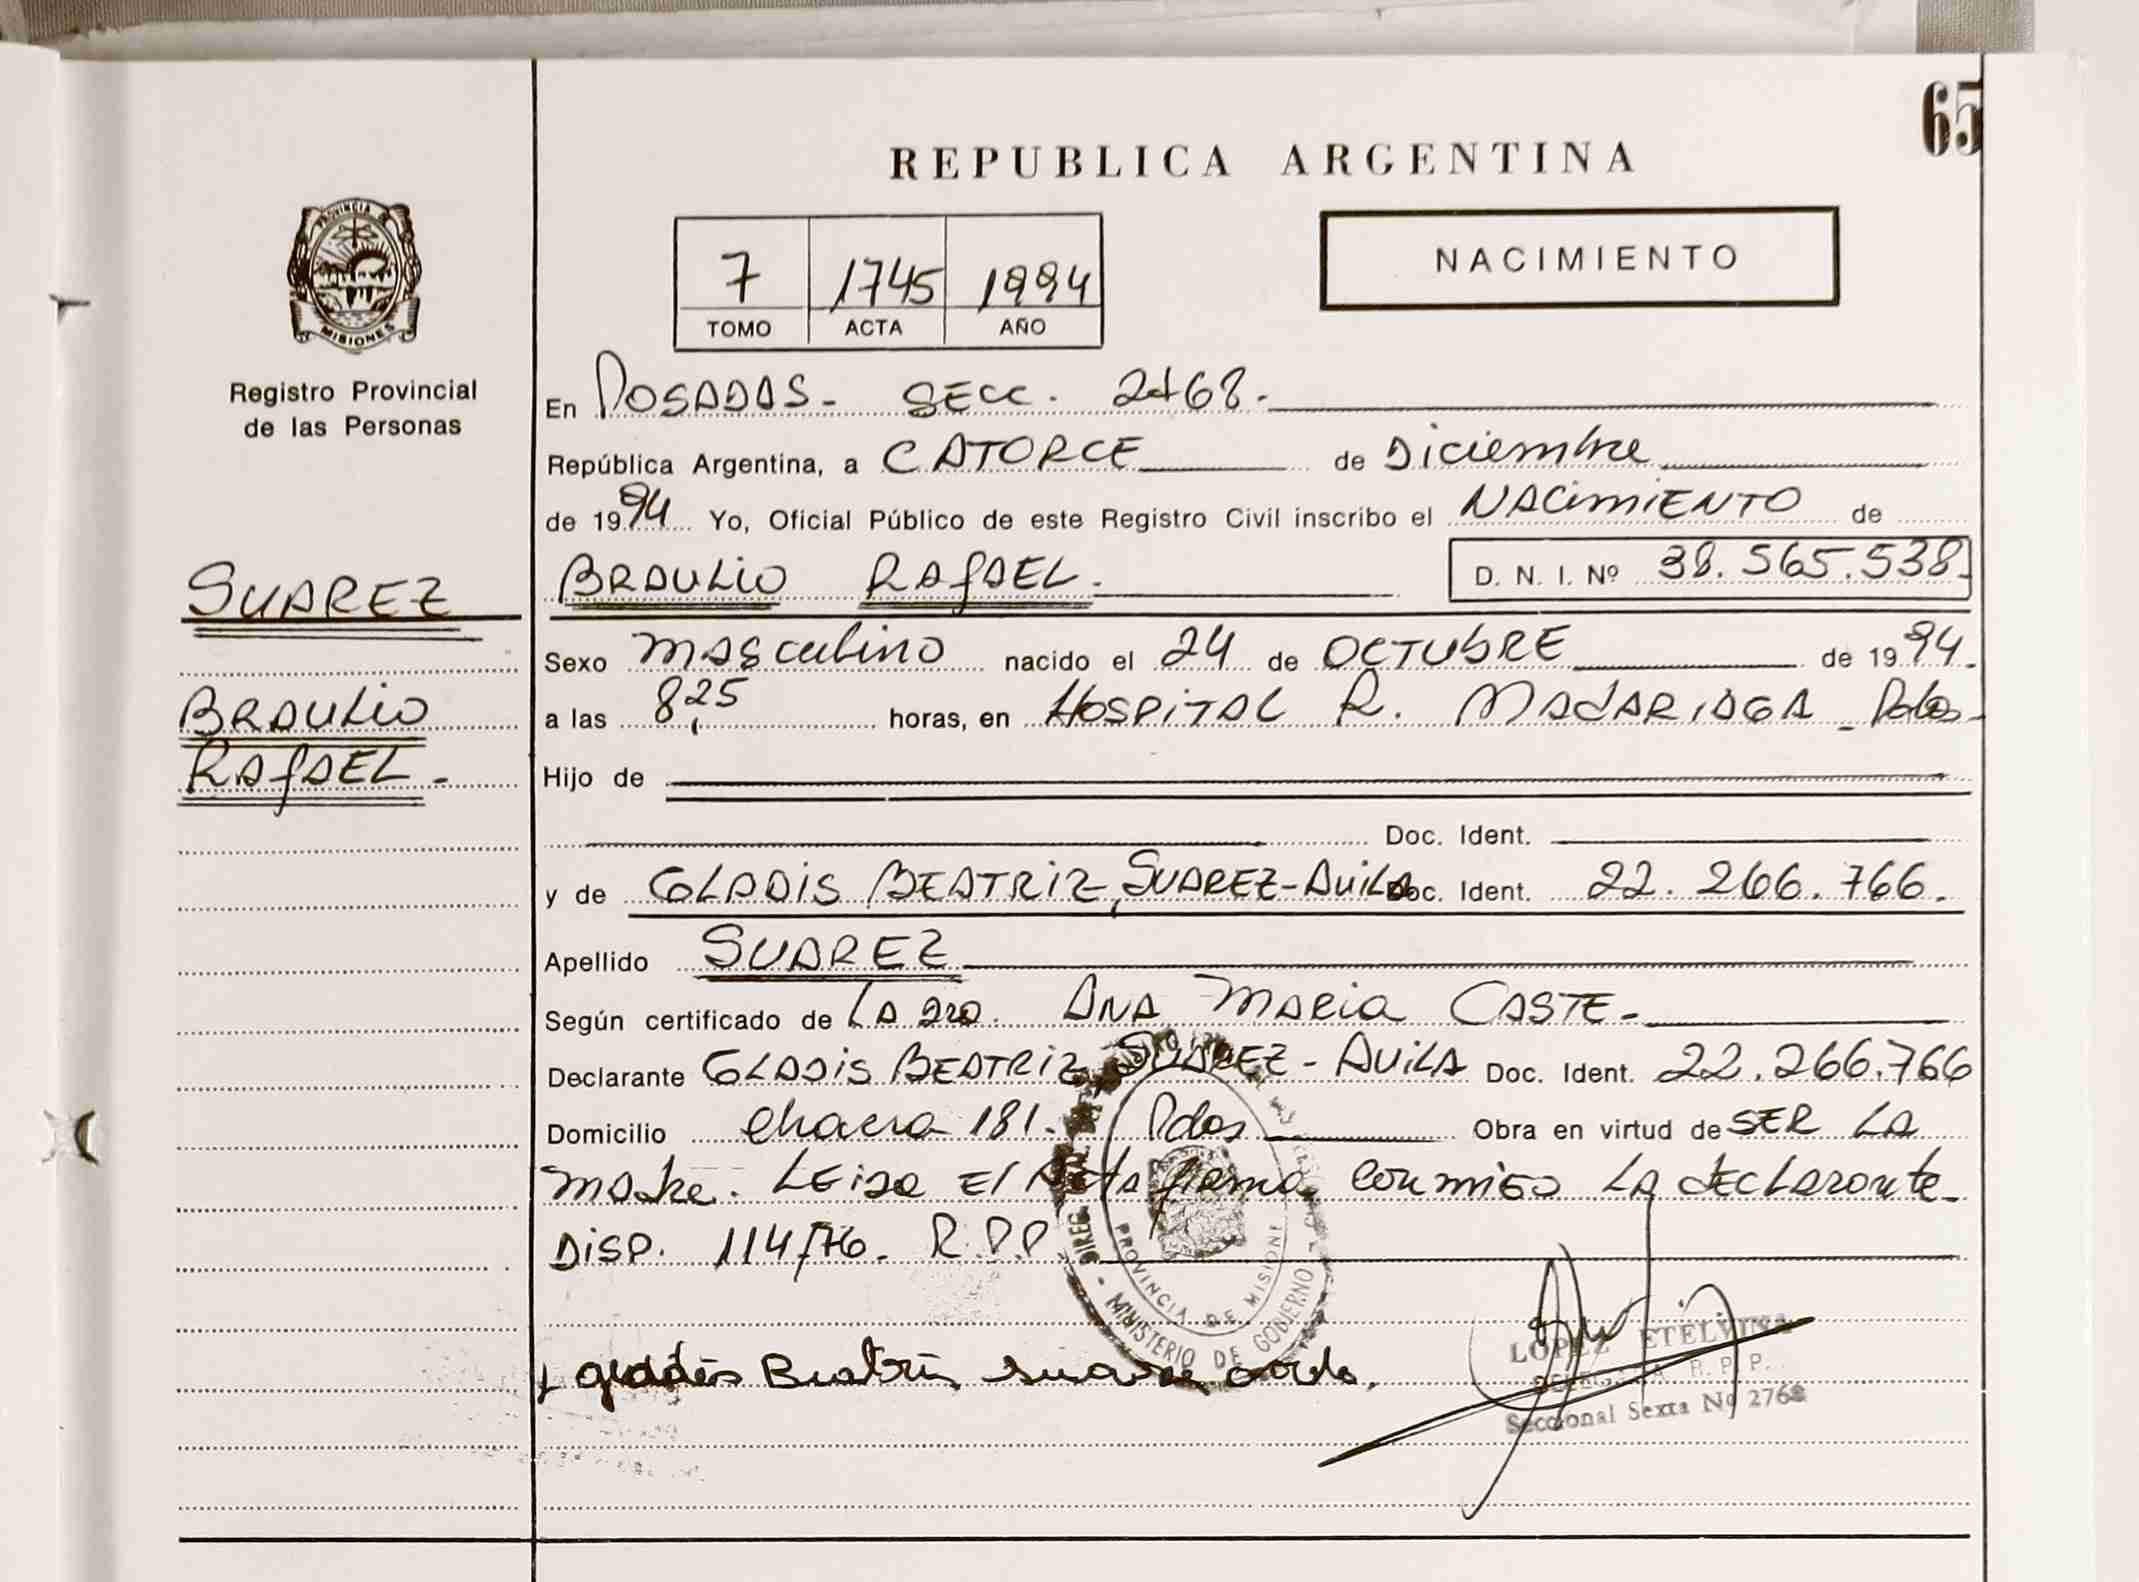 65
REPUBLICA ARGENTINA
PROVINCIA DE
MISIONES
Registro Provincial
de las Personas
NACIMIENTO
7 1745 1994
TOMO ACTA AÑO
En POSADAS - SECC. 2768.
República Argentina, a CATORCE de Diciembre
de 1994 Yo, Oficial Público de este Registro Civil inscribo el NACIMIENTO de
SUAREZ
BRAULIO RAFAEL. D. N. I. Nº 38.565.538
Sexo Masculino nacido el 24 de OCTUBRE de 1994.
BRAULIO
RAFAEL.-
a las 8,25 horas, en HOSPITAL R. MADARIAGA - Pdas-
Hijo de
Doc. Ident.
y de GLADIS BEATRIZ, SUAREZ-AVILA Doc. Ident. 22.266.766.
Apellido SUAREZ
Según certificado de LA DRA. ANA MARIA CASTE-
Declarante GLADIS BEATRIZ, SUAREZ - AVILA Doc. Ident. 22.266.766
Domicilio Chacra 181. Pdas Obra en virtud de SER LA
Madre. LEIDA El Acta firma conmigo LA declarante-
DISP. 114/76. R.P.P.
PROVINCIA DE MISIONES
MINISTERIO DE GOBIERNO
LOPEZ ETELVINA
R. P. P.
Seccional Sexta Nº 2768